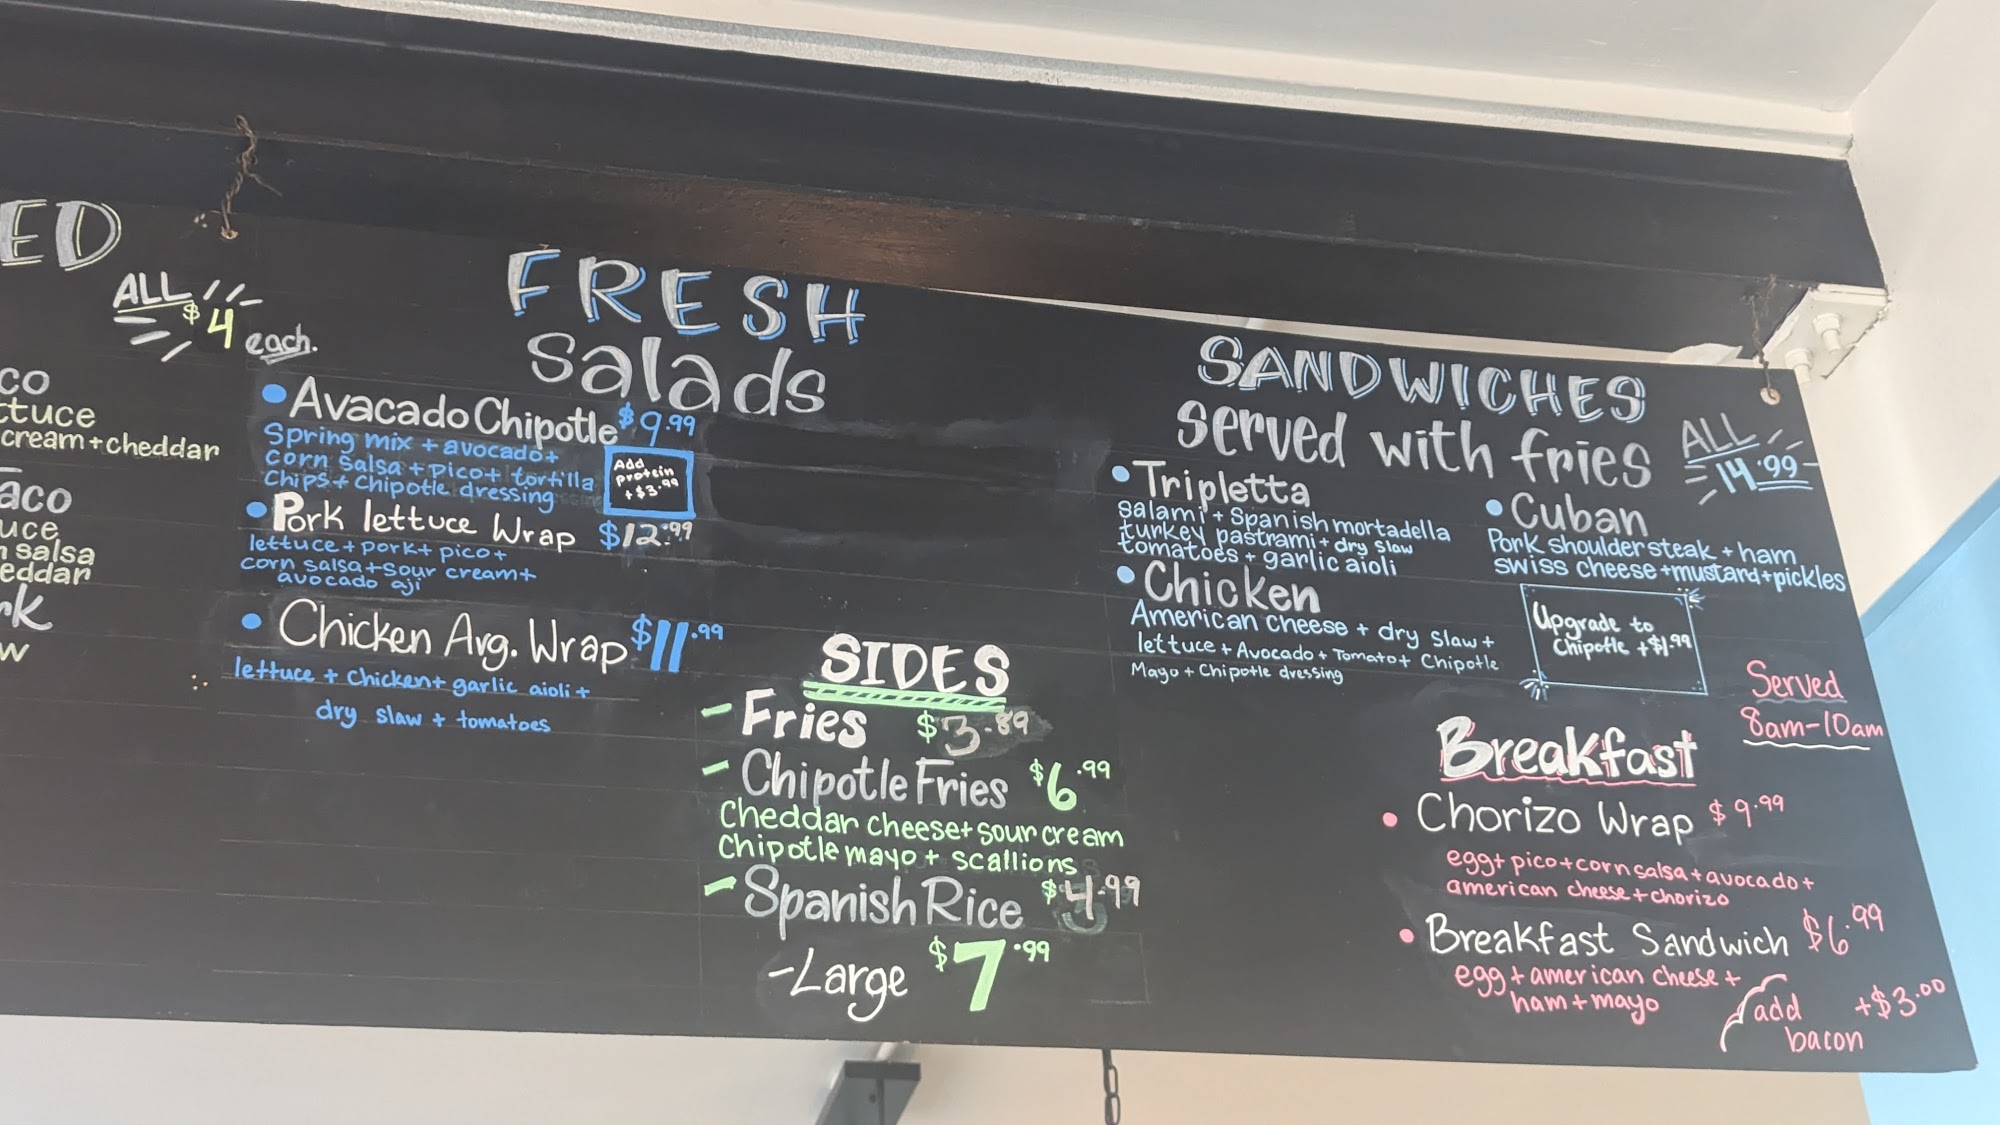 ED
ALL
$4 each.
co
ttuce
cream+cheddar
aco
uce
n salsa
eddar
rk
w
FRESH
Salads
• Avacado Chipotle $9.99
Spring mix + avocado +
corn salsa + pico + tortilla
Chips + Chipotle dressing
Add
protein
+$3.99
• Pork lettuce Wrap $12.99
lettuce + pork + pico +
corn salsa + sour cream +
avocado aji
• Chicken Avg. Wrap $11.99
lettuce + chicken + garlic aioli +
dry slaw + tomatoes
SIDES
- Fries $3.89
- Chipotle Fries $6.99
Cheddar cheese + sour cream
Chipotle mayo + scallions
- Spanish Rice $4.99
-Large $7.99
SANDWICHES
served with fries
ALL
14.99
• Tripletta
salami + Spanish mortadella
turkey pastrami + dry slaw
tomatoes + garlic aioli
• Chicken
American cheese + dry slaw +
lettuce + Avocado + Tomato + Chipotle
Mayo + Chipotle dressing
• Cuban
Pork shoulder steak + ham
swiss cheese + mustard + pickles
Upgrade to
Chipotle +$1.99
Served
8am-10am
Breakfast
• Chorizo Wrap $9.99
egg + pico + corn salsa + avocado +
american cheese + chorizo
• Breakfast Sandwich $6.99
egg + american cheese +
ham + mayo
add +$3.00
bacon